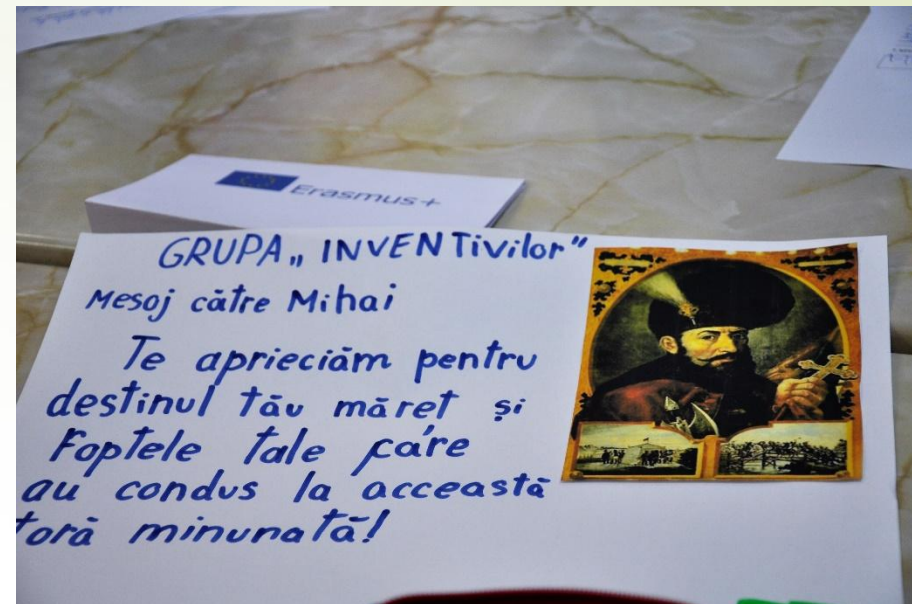 Erasmus+
GRUPA „ INVENTivilor"
Mesaj către Mihai
Te apriecíăm pentru
destinul tău măreț și
Foptele tale care
au condus la acceastă
toră minunată!